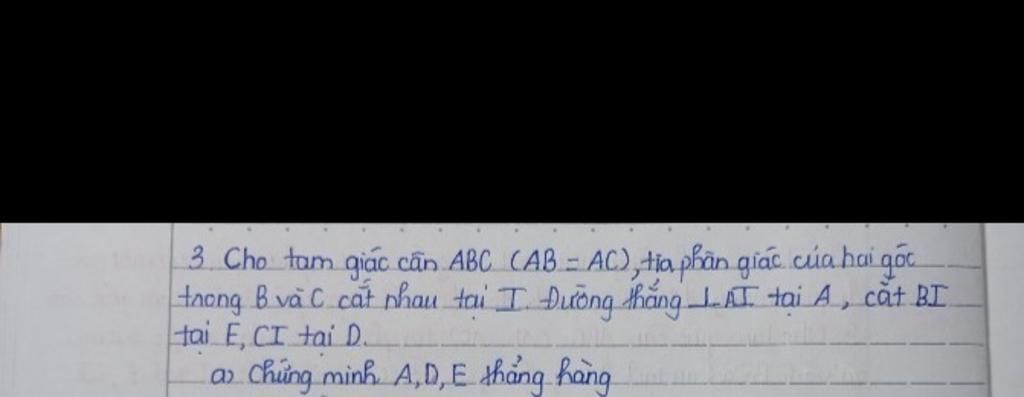 3. Cho tam giác cân ABC (AB = AC), tia phân giác của hai góc
trong B và C cắt nhau tại I. Đường thẳng ⊥ AI tại A, cắt BI
tại E, CI tại D.
a) Chứng minh A, D, E thẳng hàng